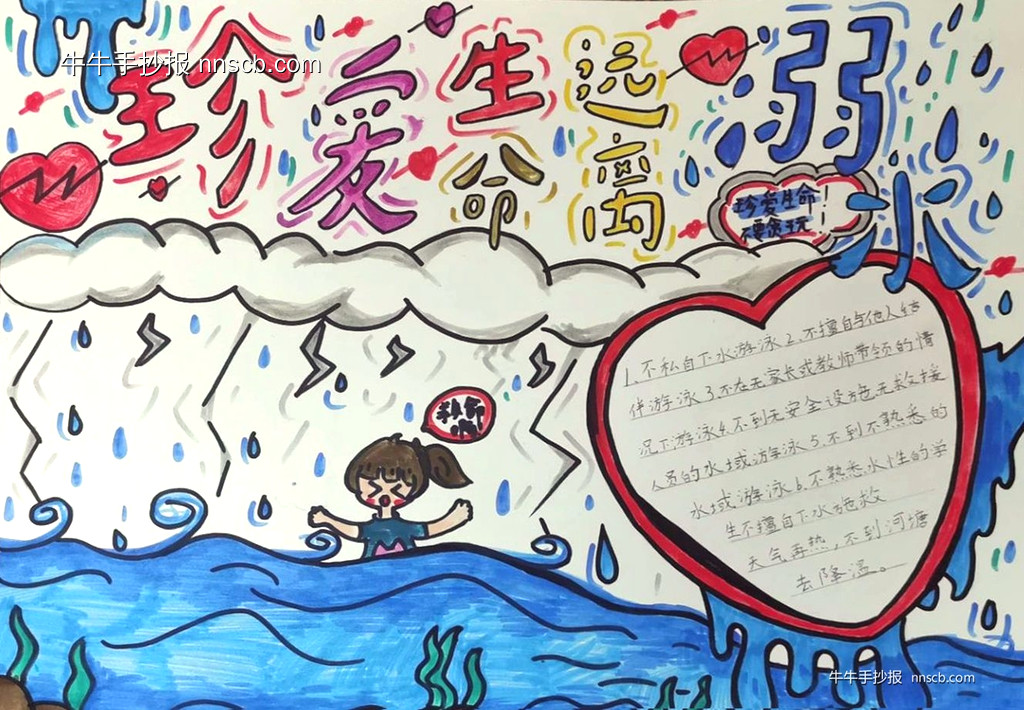 牛牛手抄报 nnscb.com
珍爱生命远离溺水
珍爱生命!
要贪玩!
救命
1、不私自下水游泳 2、不擅自与他人结
伴游泳 3、不在无家长或教师带领的情
况下游泳 4、不到无安全设施、无救援
人员的水域游泳 5、不到不熟悉的
水域游泳 6、不熟悉水性的学
生不擅自下水施救
天气再热,不到河塘
去降温。
牛牛手抄报 nnscb.com